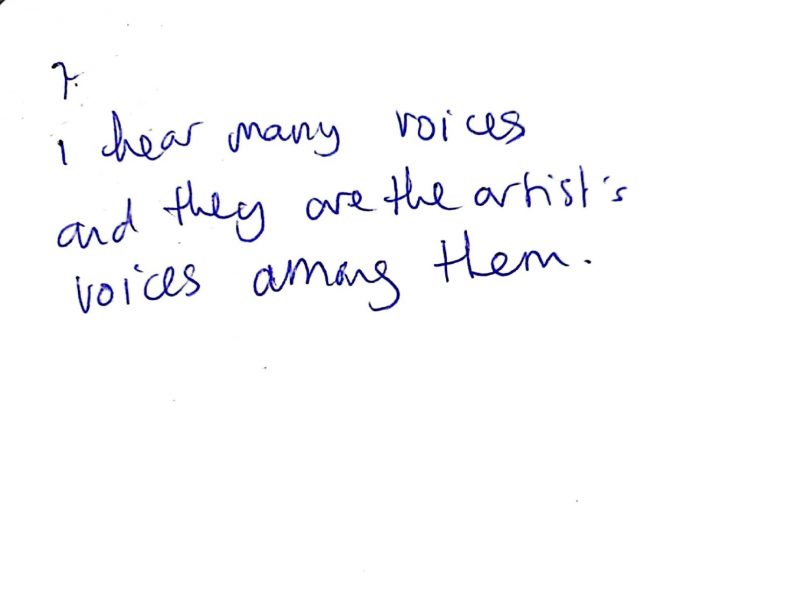 7.
i hear many voices
and they are the artist's
voices among them.